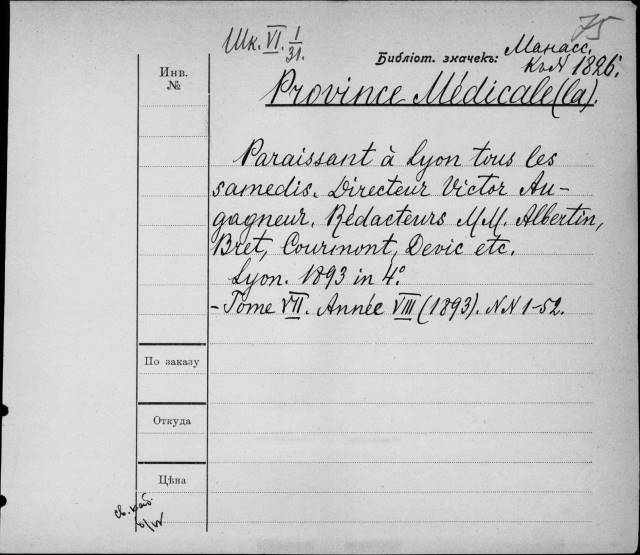 75
Шк. VI. 1/31.
Библіот. значекъ: Манасс.
К. № 1826.
Инв. №
Province Médicale (la).
Paraissant à Lyon tous les
samedis. Directeur Victor Au-
gagneur. Rédacteurs MM. Albertin,
Bret, Courmont, Devic etc.
Lyon. 1893 in 4°.
- Tome VII. Année VIII (1893). NN 1-52.
По заказу
Откуда
Цѣна